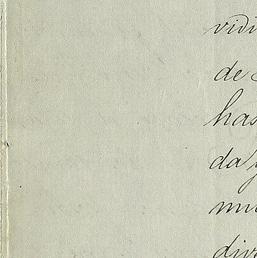 vidi
de
has
da
mu
dive